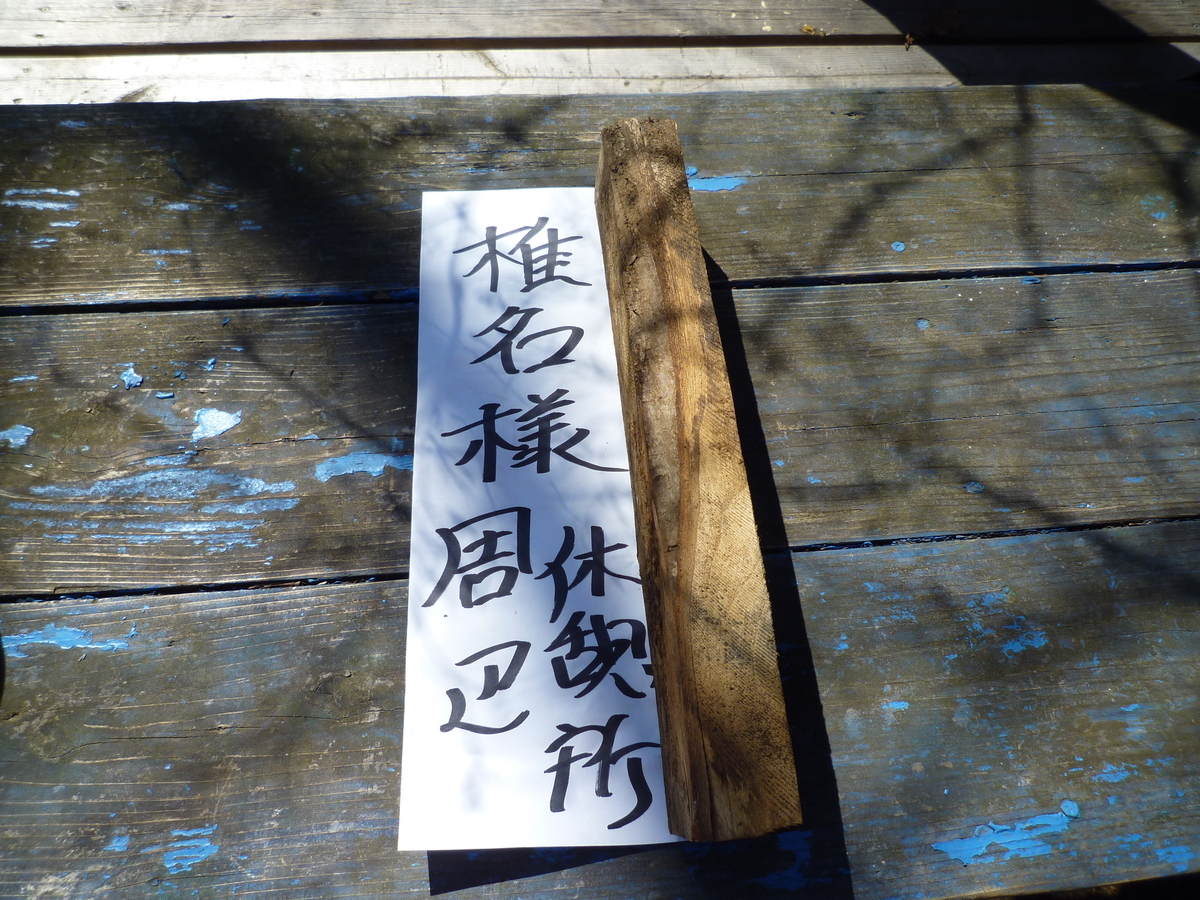 椎名様
休憩所
周辺